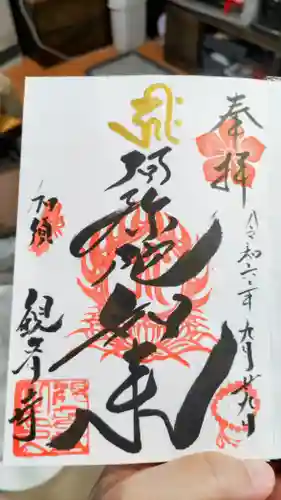 奉拝
令和六年九月廿九日
阿弥陀如来
加須
観音寺